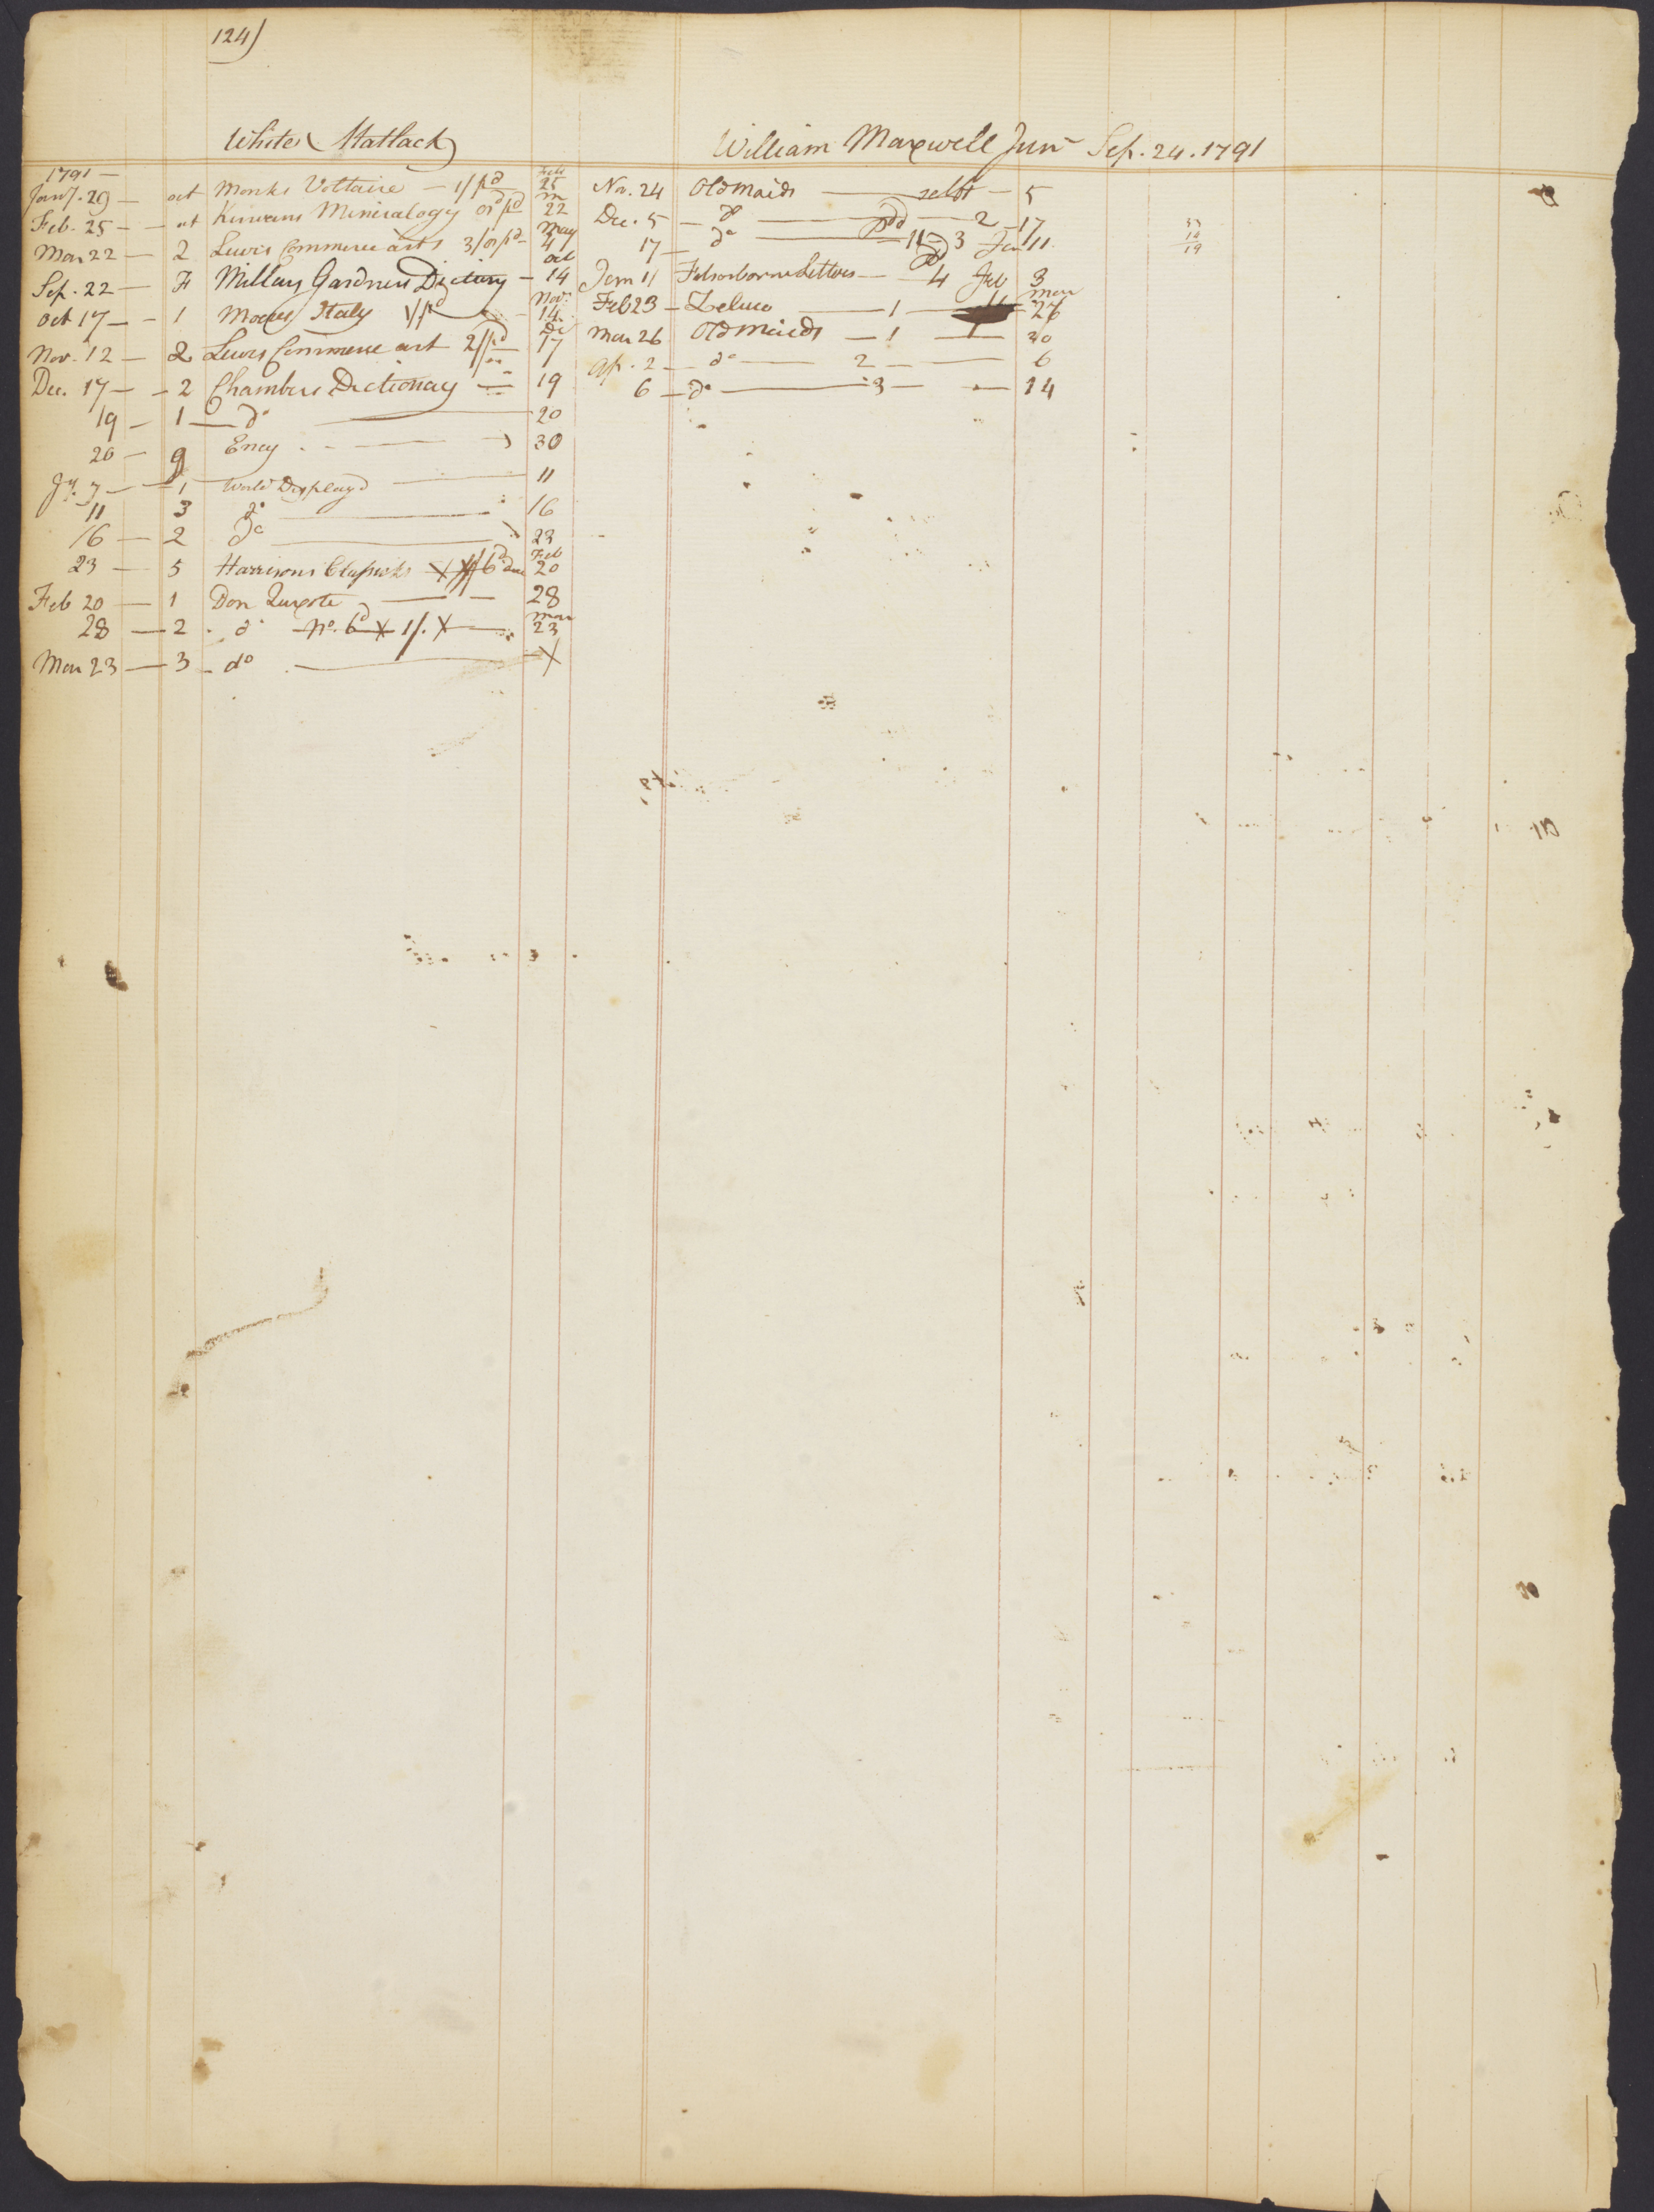 124)
White Matlack
1791 —
Jany. 29 — oct Monks Voltaire — 1/ pd Feb 25
Feb. 25 — oct Kirwans Mineralogy pd m 22
Mar 22 — 2 Lewis Commerce arts 3/ pd May 4
Sep. 22 — F Millars Gardners Dictiory — oct 14
Oct 17 — 1 Moores Italy 1/ pd Nov. 14
Nov. 12 — 2 Lewis Commerce art 2/ pd De 17
Dec. 17 — 2 Chambers Dictionary — 19
19 — 1 — do — 20
20 — 9 Ency — 30
Jy. 7 — 1 World Displayd — 11
11 3 do — 16
16 — 2 do — 23
23 — 5 Harrisons Classicks X 6d due Feb 20
Feb 20 — 1 Don Quixote — 28
28 — 2 . do No. 6d X 1/. X — Mar 23
Mar 23 — 3 — do — X
William Maxwell Junr Sep. 24. 1791
Nov. 24 Old Maids — 5
Dec. 5 — do — pd — 2 — 17
17 — do — 1/ — 3 Jan 11
Jan 11 Fitzosborne Letters — pd 4 Feb 3
Feb 23 — Zeluco — 1 — Mar 26
Mar 26 Old Maids — 1 — 30
Ap. 2 — do — 2 — 6
6 — do — 3 — 14